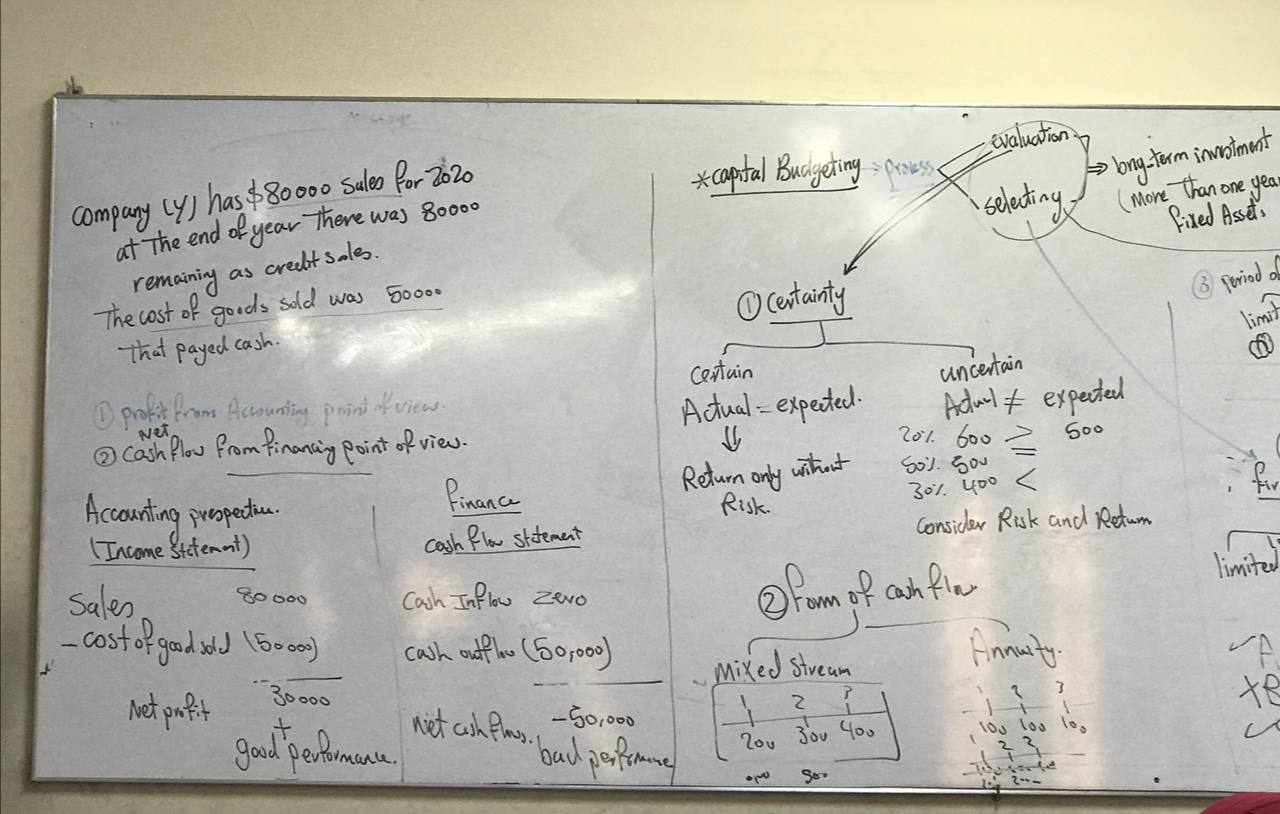 Company (Y) has $80000 sales for 2020
at The end of year There was 80000
remaining as credit sales.
The cost of goods sold was 50000
That payed cash.
① profit from Accounting point of view.
Net
② Cash flow from financing point of view.
Accounting prespective.
(Income Statement)
Sales 80000
- cost of good sold (50000)
Net profit 30000
+
good performance.
Finance
cash flow statement
Cash Inflow Zero
cash outflow (50,000)
Net cash flows. -50,000
bad performance
*capital Budgeting ⇒ process
evaluation
selecting
⇒ long-term investment
(More Than one year
fixed Assets
① Certainty
Certain
Actual = expected.
⇓
Return only without
Risk.
uncertain
Actual ≠ expected
20% 600 > 500
50% 500 =
30% 400 <
Consider Risk and Return
② Form of cash flow
Mixed Stream
1 2 3
200 300 400
Annuity.
1 2 3
100 100 100
1 2 3
③ period of
limit
limited